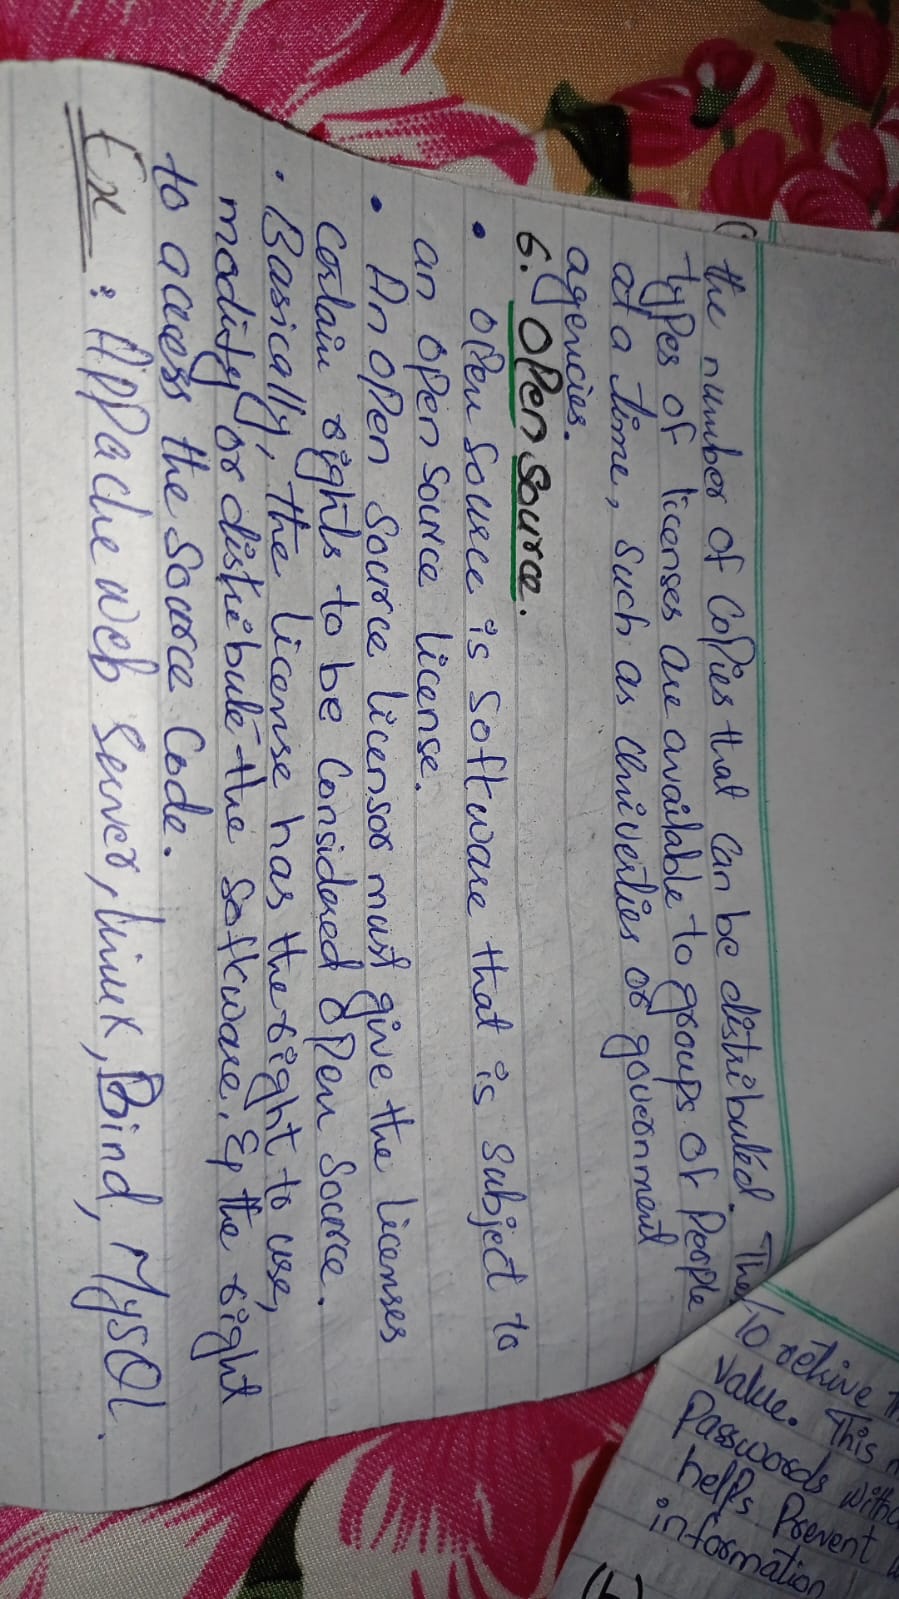 the number of Copies that can be distributed. The
types of licenses are available to groups of People
at a time, such as univerties or government
agencies.
6. Open source.
• open source is software that is subject to
an open source license.
• An open source licensor must give the licenses
certain rights to be Considered open source.
• Basically, the license has the right to use,
modity or distribute the software, & the right
to access the source Code.
Ex : Appache web server, linux, Bind, MySQL.
To retrive
value. This
passwords
helps prevent
information